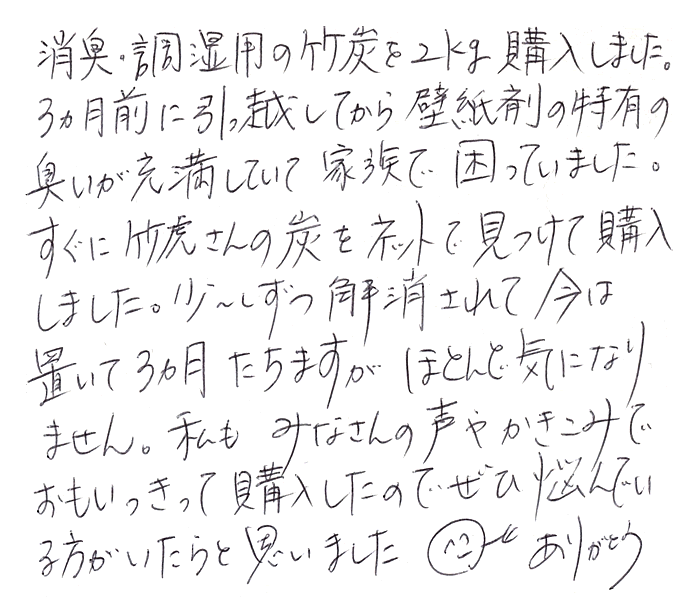 消臭・調湿用の竹炭を2kg購入しました。
3ヵ月前に引っ越してから壁紙剤の特有の
臭いが充満していて家族で困っていました。
すぐに竹虎さんの炭をネットで見つけて購入
しました。少〜しずつ解消されて今は
置いて3ヵ月たちますがほとんど気になり
ません。私もみなさんの声やかきこみで
おもいっきって購入したのでぜひ悩んでい
る方がいたらと思いました ありがとう